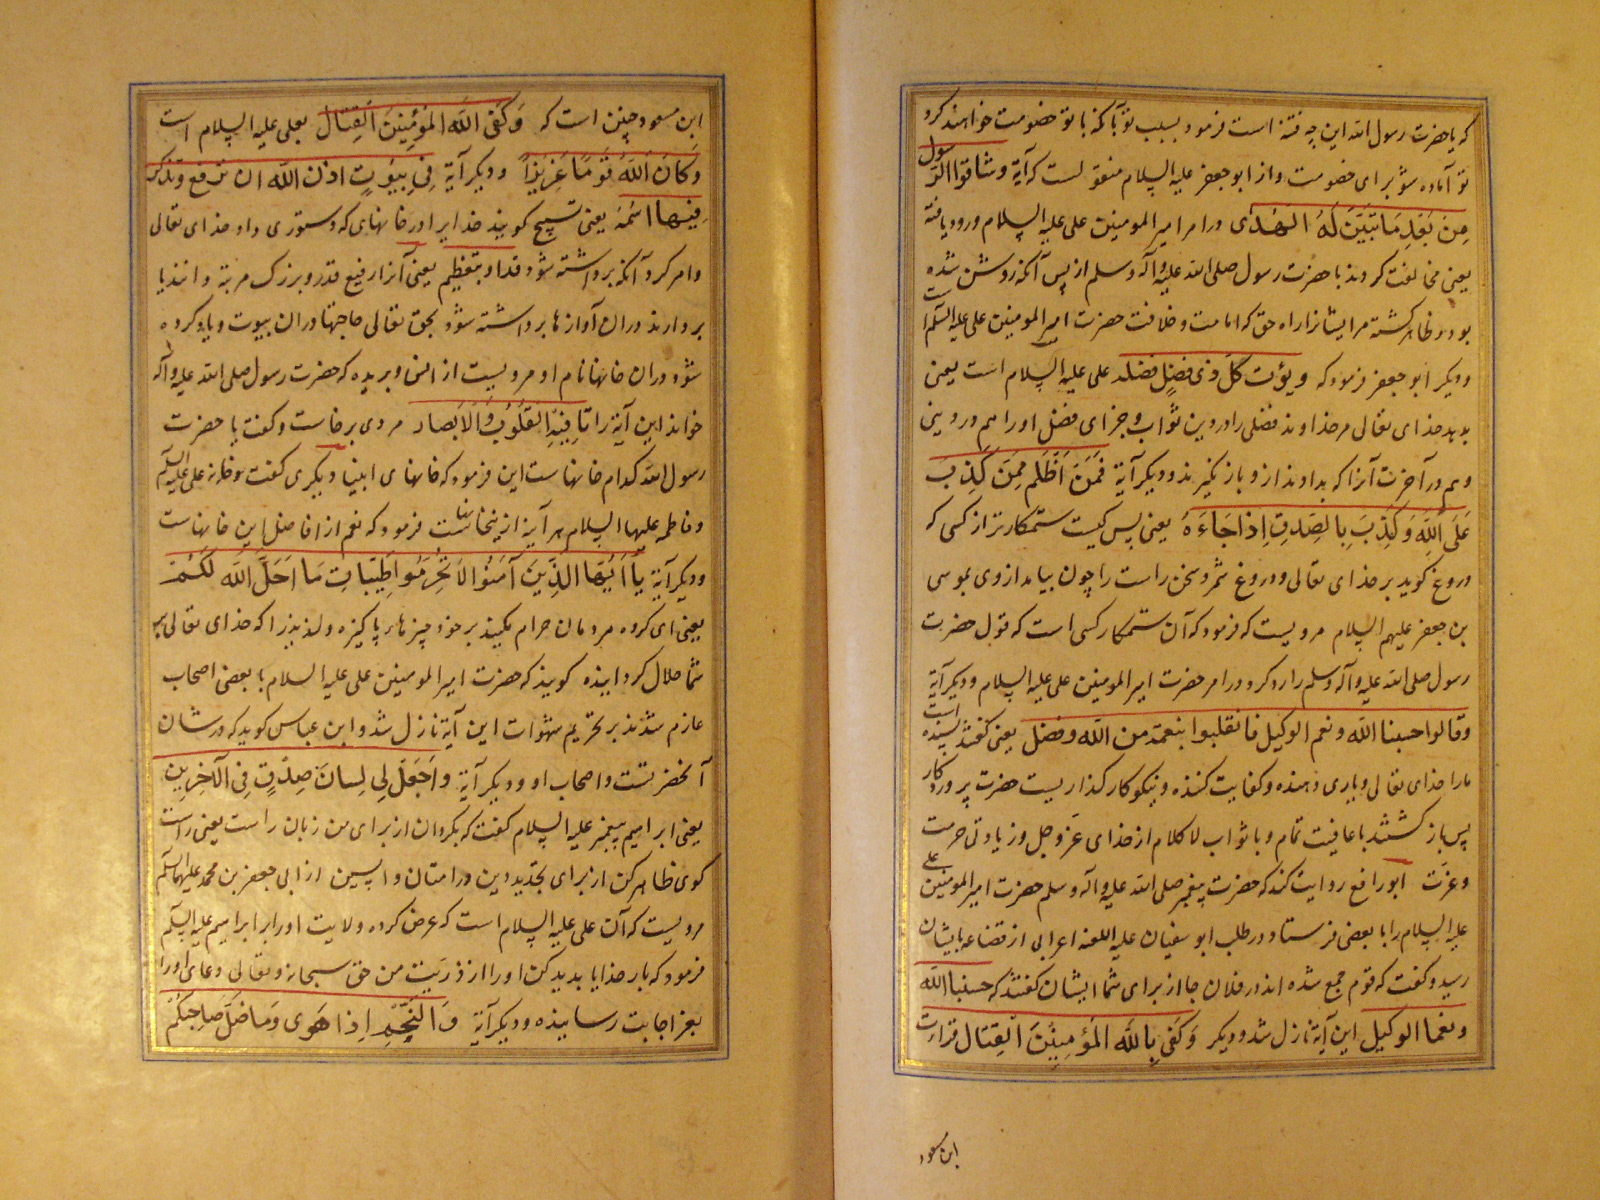 که یا حضرت رسول الله این چه فتنه است فرمود بسبب تو بآنکه با تو خصومت خواهند کرد
تو آماده شو برای خصومت و از ابو جعفر علیه السلام منقولست که آیة وشاقوا الرسول
مِنْ بَعْدِ مَا تَبَیَّنَ لَهُ الْهُدٰی در امر امیر المومنین علی علیه السلام ورود یافته
یعنی مخالفت کردند با حضرت رسول صلی الله علیه وآله وسلم از پس آنکه روشن شده
بود و ظاهر کشته مر ایشانرا راه حق که امامت و خلافت حضرت امیر المومنین علی علیه السلم است
و دیکر ابو جعفر فرموده که ویؤت کل ذی فضل فضله علی علیه السلام است یعنی
بدهد خدای تعالی مر خداوند فضلی را در دین ثواب و جزای فضل او را هم در دنیی
و هم در آخرت آنرا که بداوند ازو باز نکیرند و دیکر آیة فَمَنْ اَظْلَم مِمَنْ کَذِبَ
عَلَی اللهِ وَکَذِبَ بِالصِدقِ اِذا جَاءَهُ یعنی پس کیست ستمکارتر از کسی که
دروغ کوید بر خدای تعالی و دروغ شمرد سخن راست را چون بیامد از وی بموسی
بن جعفر علیهم السلام مرویست که فرمود که آن ستمکار کسی است که قول حضرت
رسول صلی الله علیه وآله وسلم را رد کرد در امر حضرت امیر المومنین علی علیه السلام و دیکر آیة
وقالوا حسبنا الله ونعم الوکیل فانقلبوا بنعمة من الله وفضل یعنی کفتند بسنده است
مارا خدای تعالی و یاری دهنده و کفایت کننده و نیکو کارکذاریست حضرت پروردکار
پس باز کشتند با عافیت تمام و با ثواب لا کلام از خدای عَز و جل و زیادتی حرمت
و عزت ابو رافع روایت کند که حضرت پیغمبر صلی الله علیه وآله وسلم حضرت امیر المومنین علی
علیه السلام را با بعضی فرستاد در طلب ابو سفیان علیه اللعنه اعرابی از قضاعه بایشان
رسید و کفت که قوم جمع شده اند در فلان جا از برای شما ایشان کفتند که حسنبا الله
ونعما الوکیل این آیة نازل شد و دیکر وَکَفٰی بِاللهِ الْمُؤمِنِیْنَ الْقِتَال قراءت
ابن مسعود
ابن مسعود چنین است که وَکَفَی اللهَ الْمُؤمِنِینَ الْقِتٰالَ بعلی علیه السلام است
وَکَانَ اللهُ قَومًا عَزِیزًا و دیکر آیة فِی بُیُوتٍ اذن الله ان ترفع و تذکر
فِیْهَا اسْمُهُ یعنی تسبیح کویند خدایرا در خانهای که دستوری داد خدای تعالی
و امر کرد آنکه برداشته شود قدا و بتعظیم یعنی آنرا رفیع قدر و بزرک مرتبة دانند یا
بردارند دران آوازها برداشته شود بحق تعالی حاجتها دران بیوت و یاد کرده
شود دران خانها نام او مرویست از انس و بریده که حضرت رسول صلی الله علیه وآله
خواند این آیة را تا فِیْهِ الْقُلُوْبُ وَالْاَبْصَار مردی برخاست و کفت یا حضرت
رسول الله کدام خانهاست این فرمود که خانهای ابنیا دیکری کفت و خانه علی علیه السلم
و فاطمه علیها السلام هر آیة ازین خانهاست فرمود که نعم از افاضل این خانهاست
و دیکر آیة یٰا اَیُّهَا الَّذِیْنَ آمَنُوْا لَا تُحَرِّمُوا طَیِّبَاتِ مَا اَحَلَّ الله لَکُمْ
یعنی ای کروه مردمان حرام مکنید بر خود چیزهاء پاکیزه و لذیذ را که خدای تعالی بر
شما حلال کردانیده کویند که حضرت امیر المومنین علی علیه السلام با بعضی اصحاب
عازم شدند بر تحریم شهوات این آیة نازل شد و ابن عباس کوید که در شان
آنحضرتست و اصحاب او و دیکر آیة وَاجْعَلْ لِی لِسَانَ صِدْقٍ فِی الْآخِرِینَ
یعنی ابراهیم پیغمبر علیه السلام کفت که بکردان از برای من زبان راست یعنی راست
کوی ظاهر کن از برای تجدید دین در امتان واپسین از ابی جعفر بن محمد علیهما السلم
مرویست که آن علی علیه السلام است که عرض کرده ولایت او را بر ابراهیم علیه السلم
فرمود که بار خدایا پدید کن او را از ذریت من حق سبحانه و تعالی دعای او را
بعز اجابت رسانیده و دیکر آیة وَالنَّجْمِ اِذا هَوی وَمَا ضَلَّ صَاحِبُکُمْ